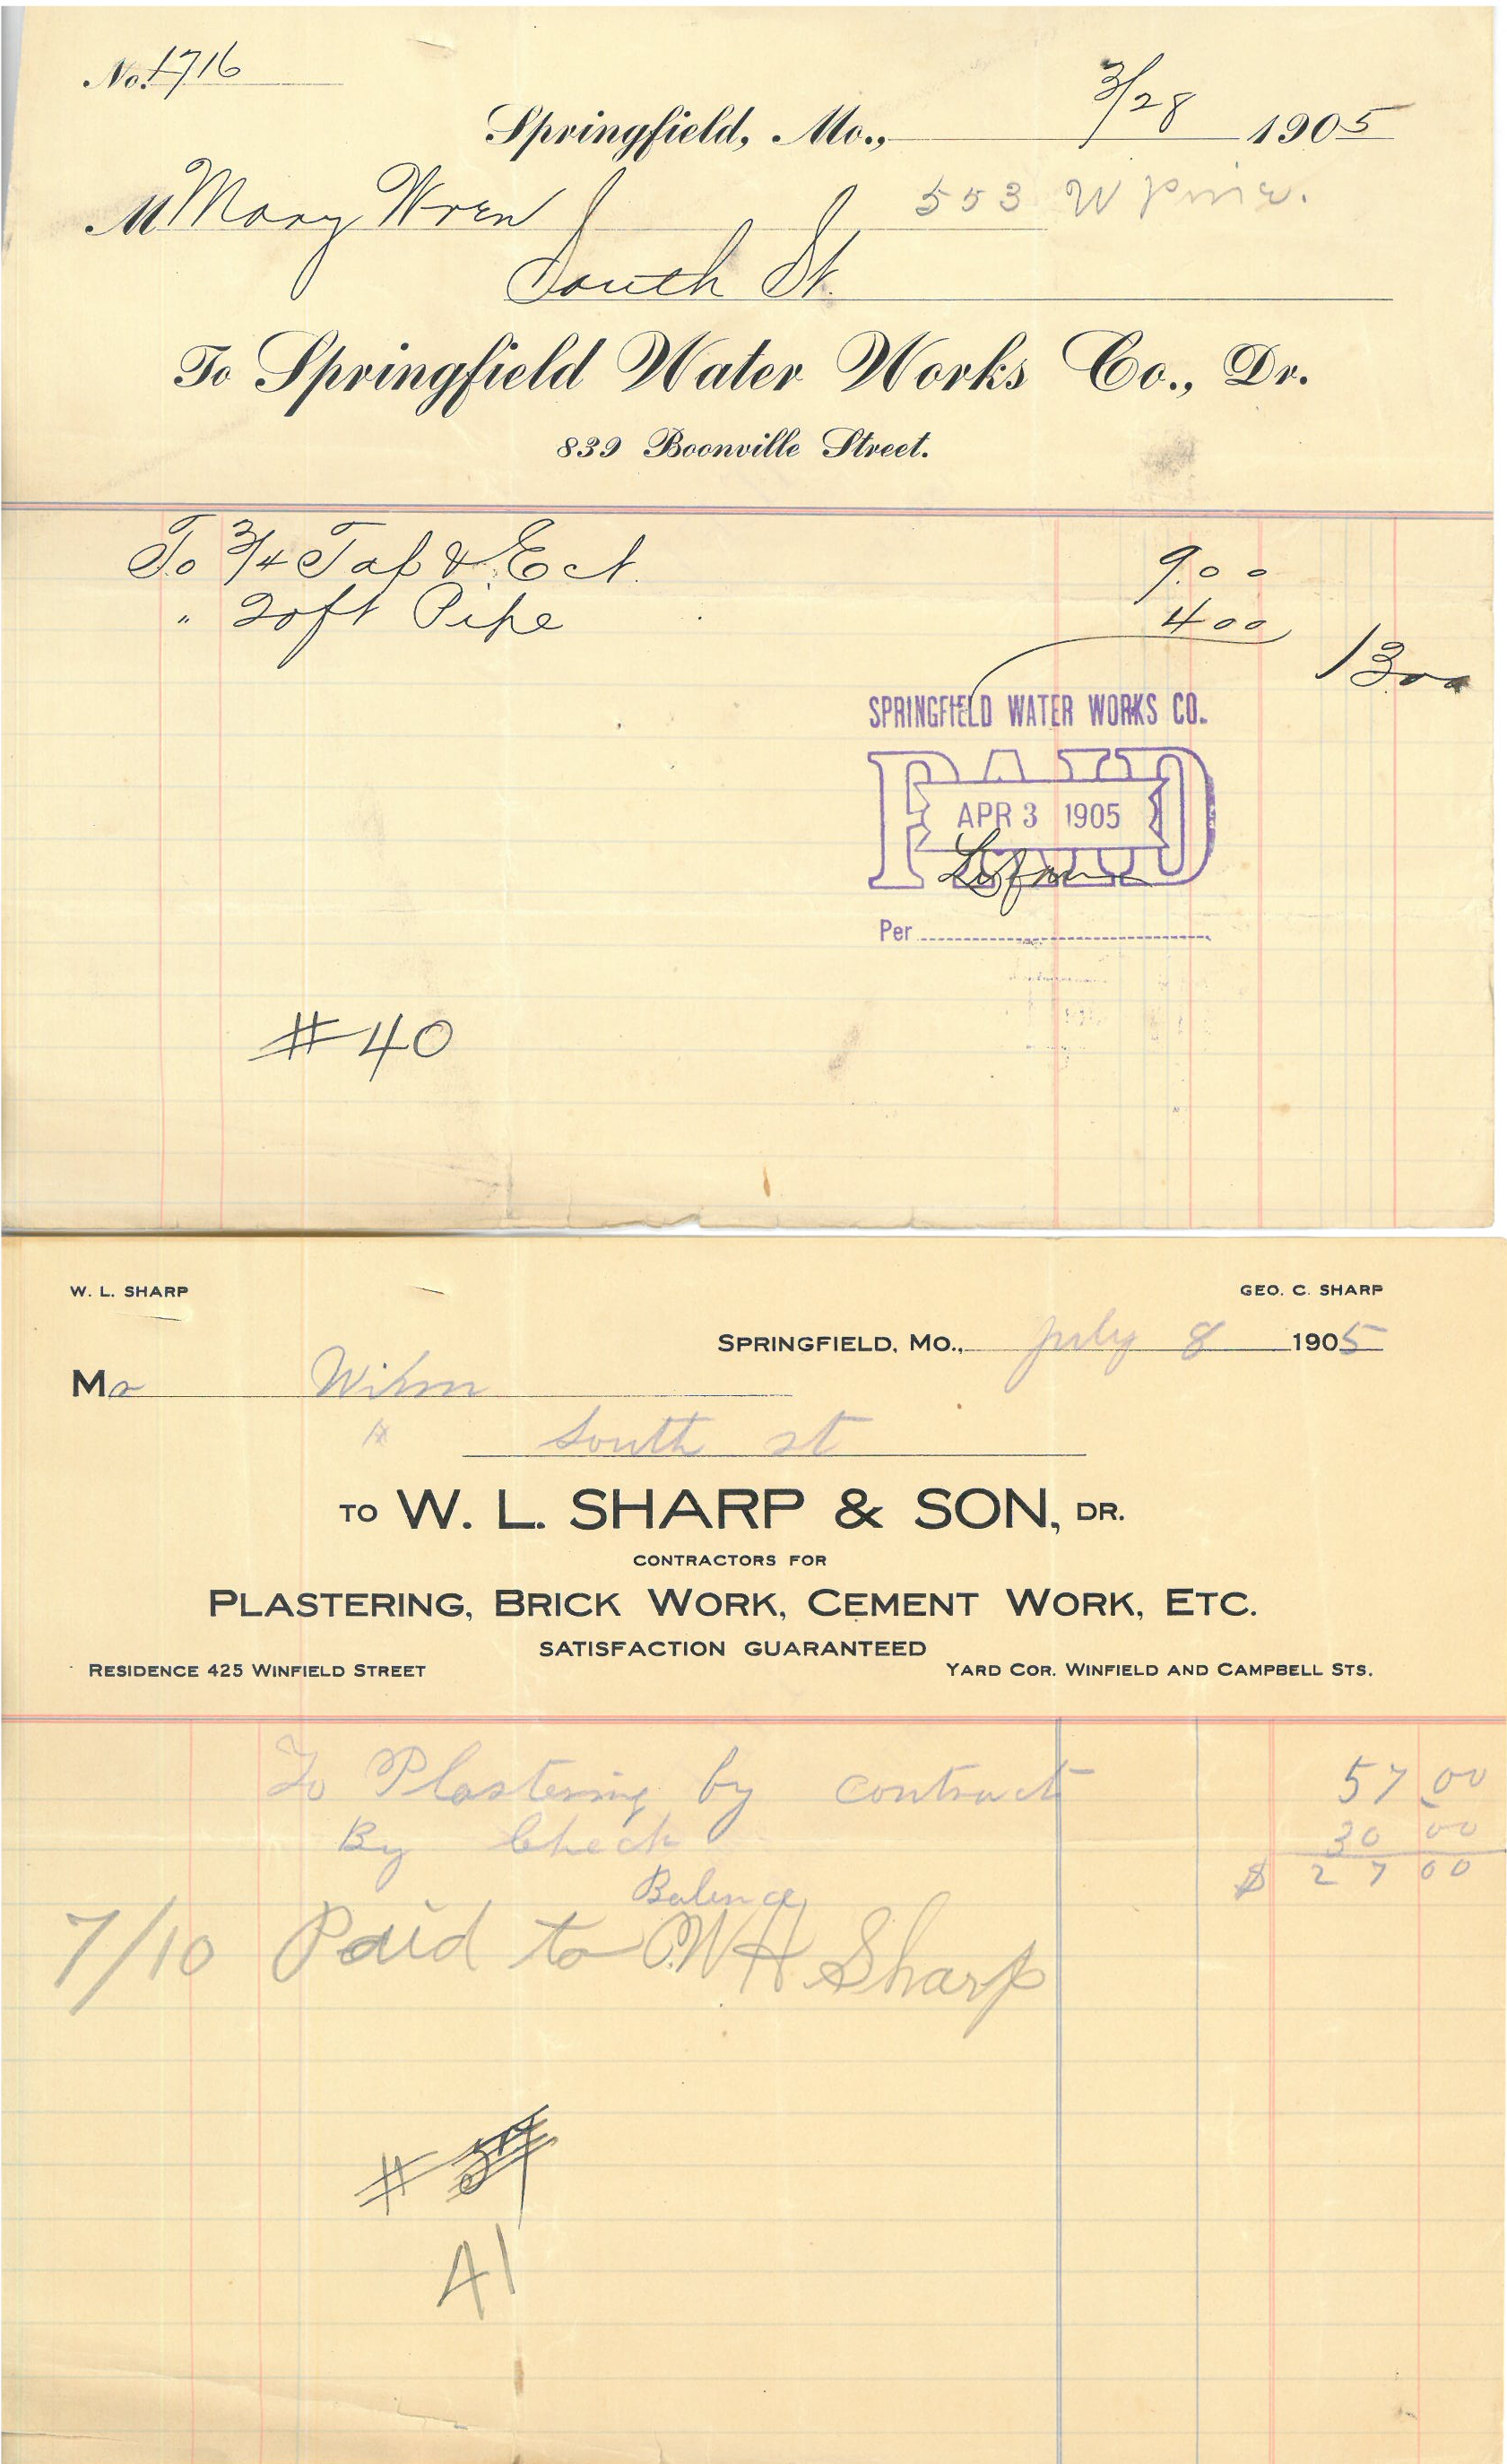 No. 1716
Springfield, Mo., 3/28 1905
M Mary Wren 553 W Pine.
South St.
To Springfield Water Works Co., Dr.
839 Boonville Street.
To 3/4 Tap & Ect. 9.00
" 20ft Pipe 4 00
13 00
SPRINGFIELD WATER WORKS CO.
PAID
APR 3 1905
Per
#40
W. L. SHARP GEO. C. SHARP
SPRINGFIELD, MO., July 8 1905
Mr
South st
TO W. L. SHARP & SON, DR.
CONTRACTORS FOR
PLASTERING, BRICK WORK, CEMENT WORK, ETC.
SATISFACTION GUARANTEED
RESIDENCE 425 WINFIELD STREET YARD COR. WINFIELD AND CAMPBELL STS.
To Plastering by contract 57 00
By Check 30 00
Balence $ 27 00
7/10 Paid to W H Sharp
#
41